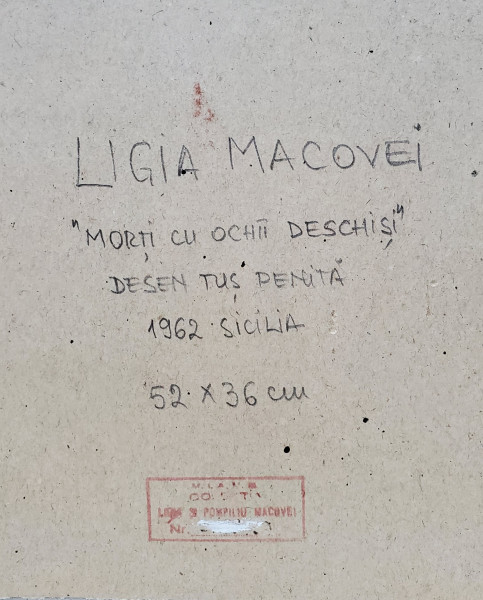 LIGIA MACOVEI
"MORȚI CU OCHII DESCHIȘI"
DESEN TUȘ PENIȚĂ
1962 SICILIA
52 x 36 cm
LIGIA ȘI POMPILIU MACOVEI
Nr.